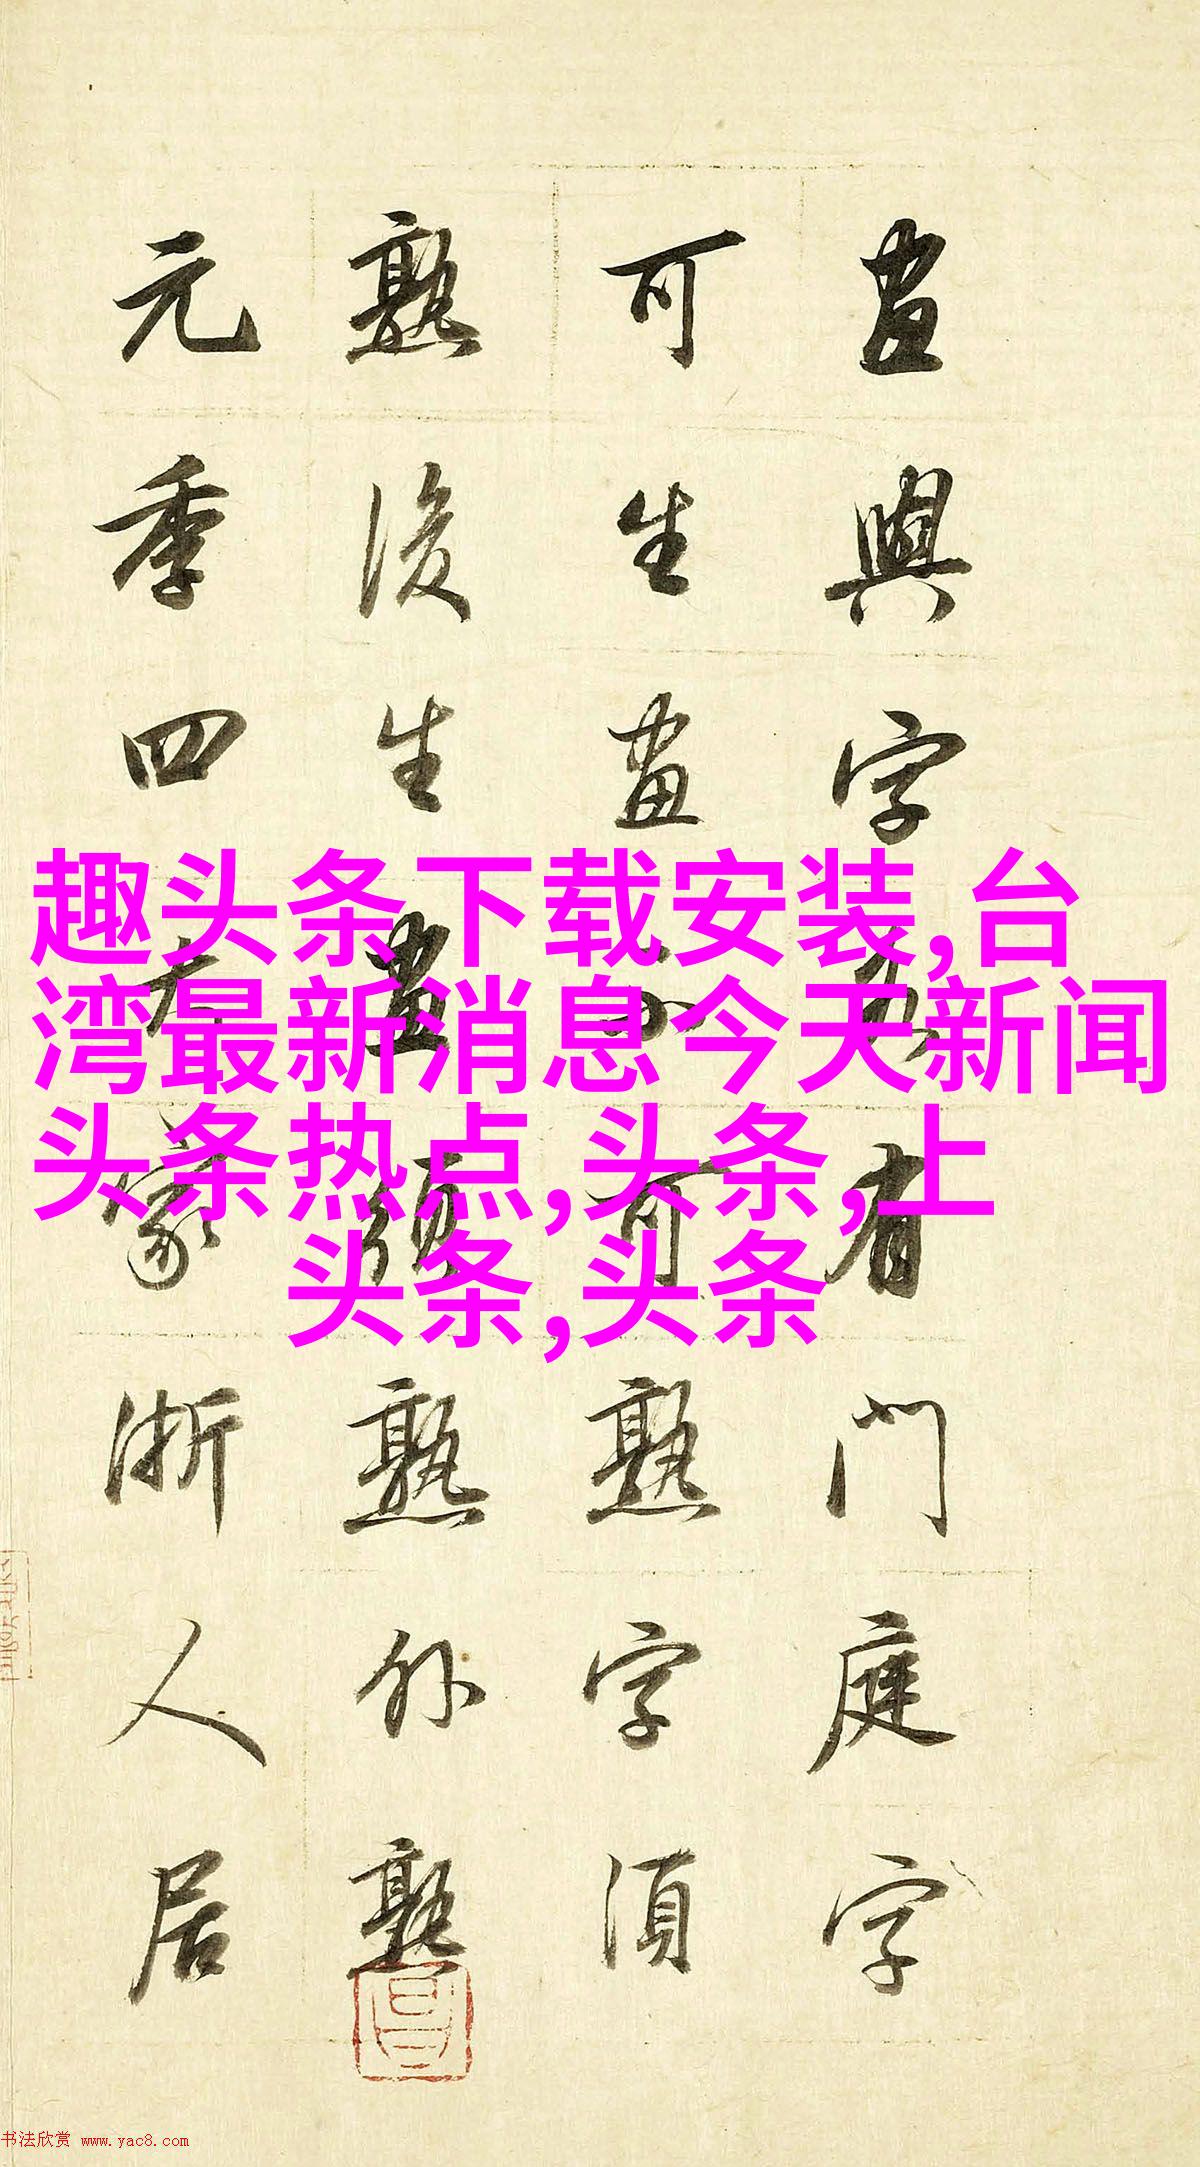 畫與字各有門庭字
可生畫不可熟字須
熟後生畫須熟外熟
元季四大家浙人居
趣头条下载安装,台
湾最新消息今天新闻
头条热点,头条,上
头条,头条
书法欣赏 www.yac8.com